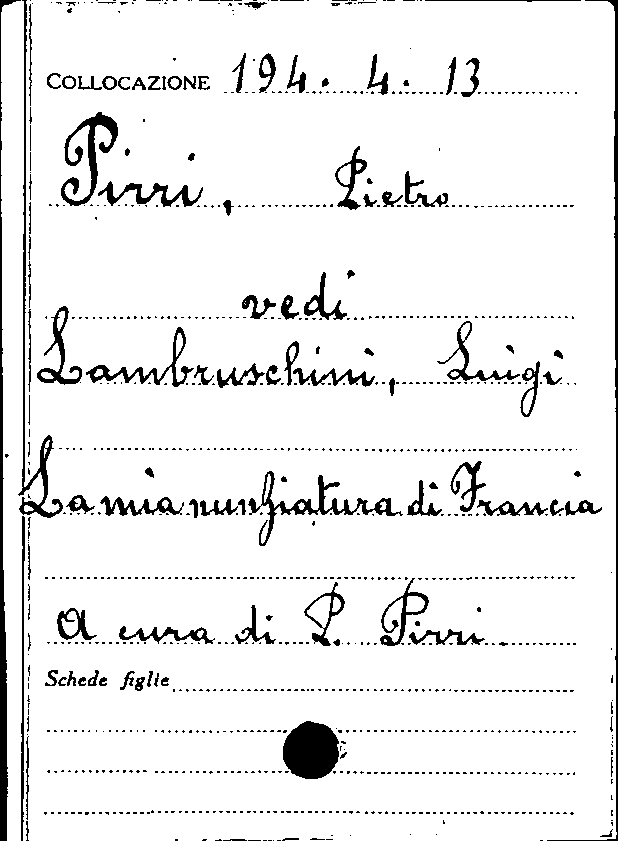 COLLOCAZIONE 194. 4. 13
Pirri, Pietro
vedi
Lambruschini, Luigi
La mia nunziatura di Francia
A cura di P. Pirri.
Schede figlie